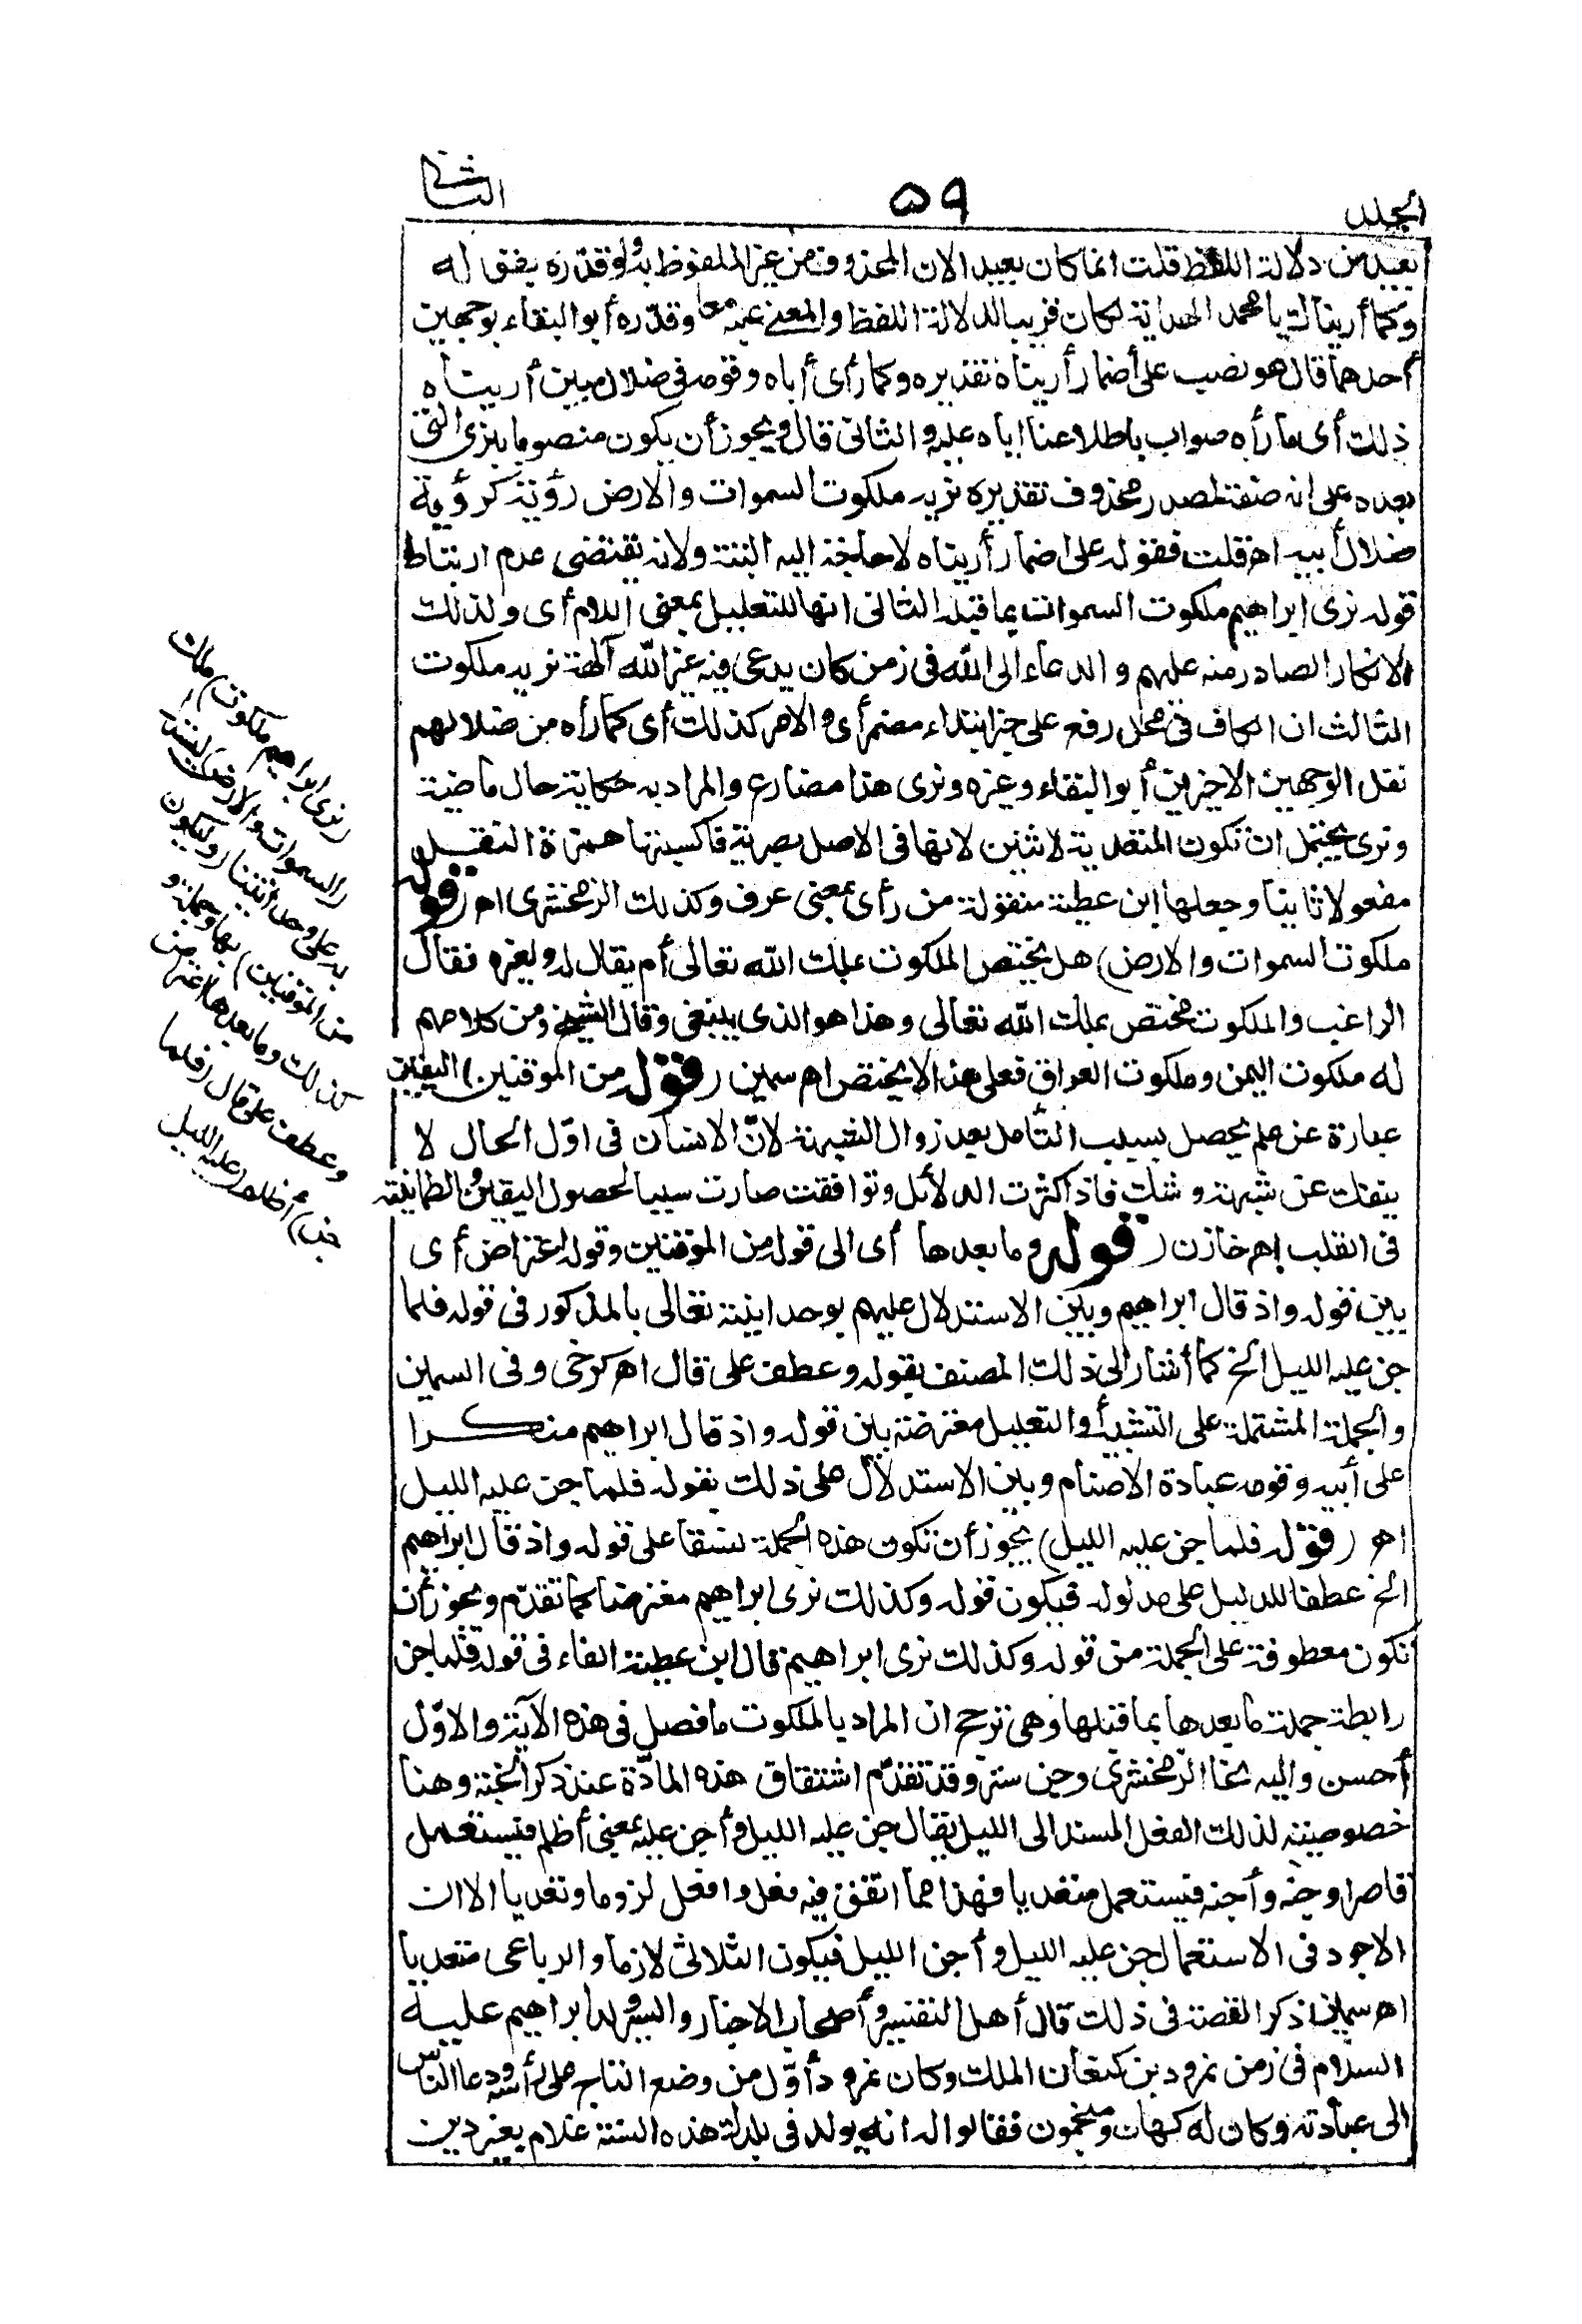 الجلد
٥٩
الثانى
بعيد من دلالة اللفظ قلت انما كان بعيد الان المحذوف من غير الملفوظ به ولو قدّره بفق له
وكما أريناك يا محمد الهداية لكان قريبا لدلالة اللفظ والمعنى عليه معا وقدّره أبو البقاء بوجهين
أحدهما قال هو نصب على أضمار أريناه تقديره وكما رأى أباه وقومه فى ضلال مبين أريناه
ذلك أى ما رأه صواب باطلاعنا اياه عليه والثانى قال ويجوز أن يكون منصوبا بنرى التى
بعده على انه صفة لمصدر محذوف تقديره نريه ملكوت السموات والارض رؤية كرؤية
ضلال أبيه اهر قلت فقوله على اضمار أريناه لا حاجة اليه البتة ولانه يقتضى عدم ارتباط
قوله نرى ابراهيم ملكوت السموات بما قبله الثالث انها للتعليل بمعنى اللام أى ولذلك
الانكار الصادر منه عليهم والدعاء الى الله فى زمن كان يدعى فيه غير الله آلهة نريه ملكوت
الثالث ان الكاف فى محل رفع على خبر ابتداء مضمر أى والامر كذلك أى كما رأه من ضلالهم
نقل الوجهين الاخيرين أبو البقاء وغيره ونرى هذا مضارع والمراد به حكاية حال ماضية
ونرى يحتمل ان تكون المتعدية لاثنين لانها فى الاصل بصرية فأكسبتها همزة النقل
مفعولا ثانيا وجعلها ابن عطية منقولة من رأى بمعنى عرف وكذلك الزمخشرى اهر (قوله
ملكوت السموات والارض) هل يختص الملكوت بملك الله تعالى أم يقال له ولغيره فقال
الراغب والملكوت مختص بملك الله تعالى وهذا هو الذى ينبغى وقال الشيخ ومن كلامهم
له ملكوت اليمن وملكوت العراق فعلى هذا لا يختص اهر سمين (قوله من الموقنين) اليقين
عبارة عن علم يحصل بسبب التأمل بعد زوال الشبهة لانّ الانسان فى اوّل الحال لا
ينفك عن شبهة وشك فاذا كثرت الدلائل وتوافقت صارت سببا لحصول اليقين والطمانينة
فى القلب اهر خازن (قوله وما بعدها أى الى قوله من الموقنين وقوله اعتراض أى
بين قوله واذ قال ابراهيم وبين الاستدلال عليهم بوحدانيته تعالى بالمذكور فى قوله فلما
جن عليه الليل الخ كما أشار الى ذلك المصنف بقوله وعطف على قال اهر كرخى وفى السمين
والجملة المشتملة على التشبيه أو التعليل معترضة بين قوله واذ قال ابراهيم منكرا
على أبيه وقومه عبادة الاصنام وبين الاستدلال على ذلك بقوله فلما جن عليه الليل
اهر (قوله فلما جن عليه الليل) يجوز أن تكون هذه الجملة نسقا على قوله واذ قال ابراهيم
الخ عطفا للدليل على مدلوله فيكون قوله وكذلك نرى ابراهيم معترضا كما تقدّم ويجوز أن
تكون معطوفة على الجملة من قوله وكذلك نرى ابراهيم قال ابن عطية الفاء فى قوله فلما جن
رابطة جملة ما بعدها بما قبلها وهى ترجح ان المراد بالملكوت ما فصل فى هذه الآية والاوّل
أحسن واليه نحا الزمخشرى وجن ستر وقد تقدّم اشتقاق هذه المادّة عند ذكر الجنة وهنا
خصوصيته لذلك الفعل المسند الى الليل يقال جن عليه الليل وأجن عليه بمعنى أظلم فيستعمل
قاصرا وجنه وأجنه فيستعمل متعديا فهذا مما اتفق فيه فعل وافعل لزوما وتعديا الا ان
الاجود فى الاستعمال جن عليه الليل وأجن الليل فيكون الثلاثى لازما والرباعى متعديا
اهر سمين ذكر القصة فى ذلك قال أهل التفسير وأصحاب الاخبار والسير ولد ابراهيم عليه
السلام فى زمن نمرود بن كنعان الملك وكان نمرود أوّل من وضع التاج على رأسه ودعا الناس
الى عبادته وكان له كهان ومنجمون فقالوا له انه يولد فى بلدك هذه السنة غلام يغير دين
(نرى ابراهيم ملكوت) ملك
(السموات والارض) ليستدل
به على وحدانيتنا (وليكون
من الموقنين) بها وجملة و
كذلك وما بعدها اعتراض
وعطف على قال (فلما
جن) أظلم (عليه الليل